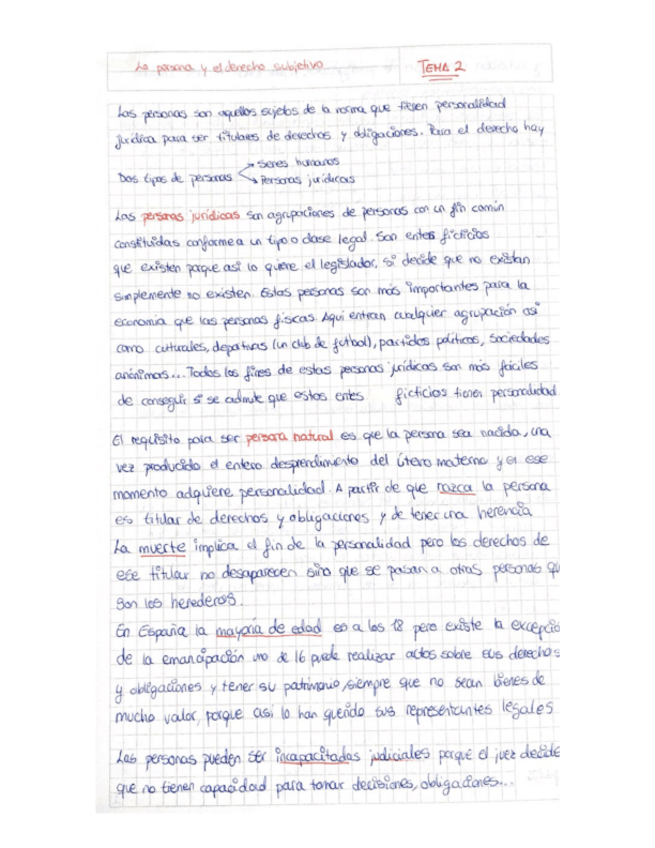 La persona y el derecho subjetivo
TEMA 2
Las personas son aquellos sujetos de la norma que tienen personalidad
jurídica para ser titulares de derechos y obligaciones. Para el derecho hay
Dos tipos de personas
Seres humanos
Personas jurídicas
Las personas jurídicas son agrupaciones de personas con un fin común
constituidas conforme a un tipo o clase legal. Son entes ficticios
que existen porque así lo quiere el legislador, si decide que no existan
simplemente no existen. Estas personas son más importantes para la
economía que las personas físcas. Aquí entran cualquier agrupación así
como culturales, deportivas (un club de futbol), partidos políticos, sociedades
anónimas... Todos los fines de estas personas jurídicas son más fáciles
de conseguir si se admite que estos entes ficticios tienen personalidad
El requisito para ser persona natural es que la persona sea nacida, una
vez producido el entero desprendimiento del útero materno y en ese
momento adquiere personalidad. A partir de que nazca la persona
es titular de derechos y obligaciones y de tener una herencia
La muerte implica el fin de la personalidad pero los derechos de
ese titular no desaparecen sino que se pasan a otras personas qu
son los herederos.
En España la mayoría de edad es a los 18 pero existe la excepció
de la emancipación uno de 16 puede realizar actos sobre sus derechos
y obligaciones y tener su patrimonio, siempre que no sean bienes de
mucho valor, porque así lo han querido sus representantes legales
Las personas pueden ser incapacitadas judiciales porque el juez decide
que no tienen capacidad para tomar decisiones, obligaciones...